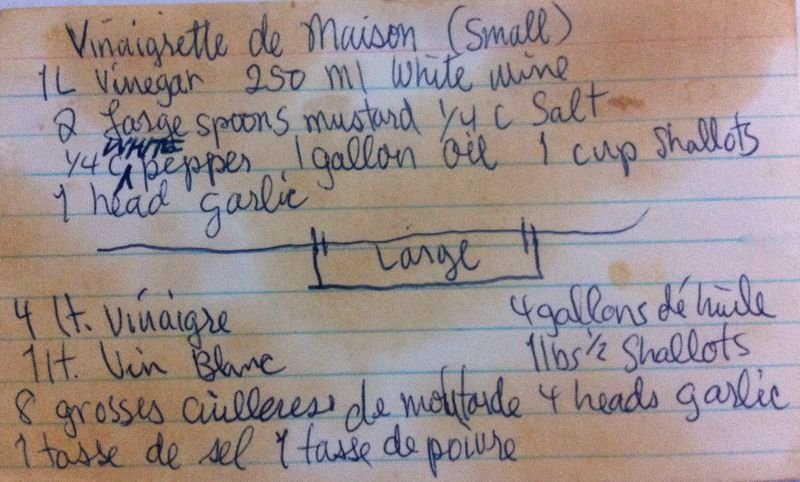 Vinaigrette de Maison (Small)
1L Vinegar 250 ml White wine
2 Large spoons mustard 1/4 C Salt
1/4 C WHITE pepper 1 gallon oil 1 cup shallots
1 head garlic
" Large "
4 lt. Vinaigre 4 gallons dé huile
1 lt. Vin Blanc 1 lbs 1/2 Shallots
8 grosses cuilleres de moutarde 4 heads garlic
1 tasse de sel 1 tasse de poivre